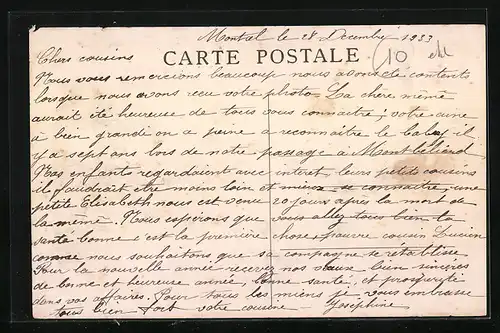 Montrel le 28 Decembre 1933
CARTE POSTALE
10
Chers cousins
Nous vous remercions beaucoup nous avons été contents
lorsque nous avons reçu votre photo. La chère mémé
aurait été heureuse de tous vous connaitre ; votre ainé
a bien grandi on a peine a reconnaitre le baby il
y a sept ans lors de notre passage à Montbéliard
Mes enfants regardaient avec intret leurs petits cousins
il faudrait etre moins loin et mieux se connaitre, une
petite Elisabeth nous est venu 20 jours après la mort de
la mémé. Nous esperons que vous allez tous bien la
santé bonne c'est la première chose, pauvre cousin Lucien
comme nous souhaitons que sa compagne se rétablisse
Pour la nouvelle année recevez nos vœux bien sincères
de bonne et heureuse année, bonne santé, et prospérité
dans vos affaires. Pour tous les miens je vous embrasse
tous bien fort votre cousine — Joséphine